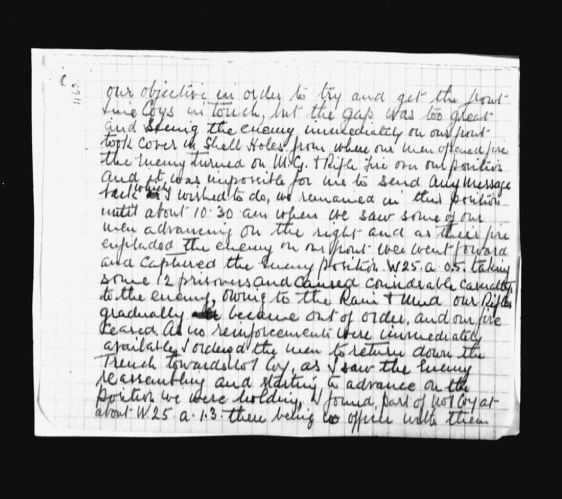 our objective in order to try and get the front
line Coys in touch, but the gap was too great
and Seeing the enemy immediately on our front
took cover in Shell Holes from where our men opened fire
the Enemy turned on M.G. & Rifle Fire on our position
and it was imposible for me to send any message
back which I wished to do, we remained in this position
until about 10.30 am when we saw some of our
men advancing on the right and as their fire
enfiladed the enemy on our front wee went forward
and captured the Enemy position W25.a.0.5. taking
some 12 prisoners and caused considrable casualtys
to the enemy, owing to the Rain & Mud our Rifles
gradually became out of order, and our fire
ceased. As no reinforcements were immediately
available I ordered the men to return down the
Trench towards No 1 Coy, as I saw the Enemy
reassembling and starting to advance on the
position we were holding, I found part of No 1 Coy at
about W25.a.1.3. there being no officer with them